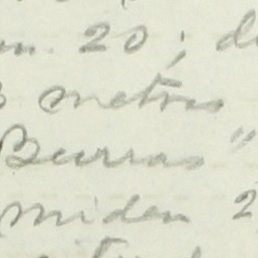 20; d
metros
Burras"
miden 2